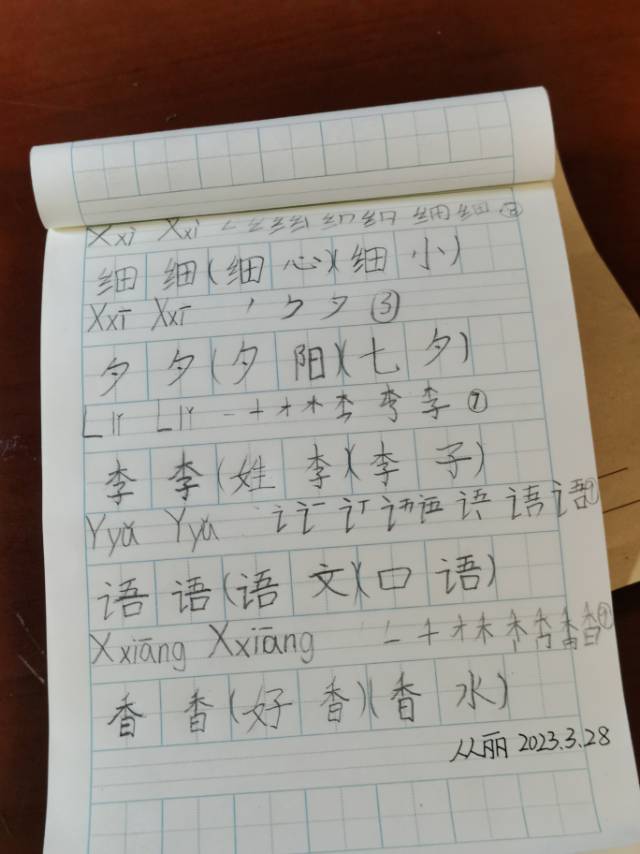 Xxì Xxì 细 细
细 细(细 心)(细 小)
Xxī Xxī 丿 ク 夕 ③
夕 夕(夕 阳)(七 夕)
Llǐ Llǐ 一 十 才 木 李 ⑦
李 李(姓 李)(李 子)
Yyǔ Yyǔ 语 ⑨
语 语(语 文)(口 语)
Xxiāng Xxiāng 一 二 千 禾 禾 香 香 香 ⑨
香 香(好 香)(香 水)
从丽 2023.3.28